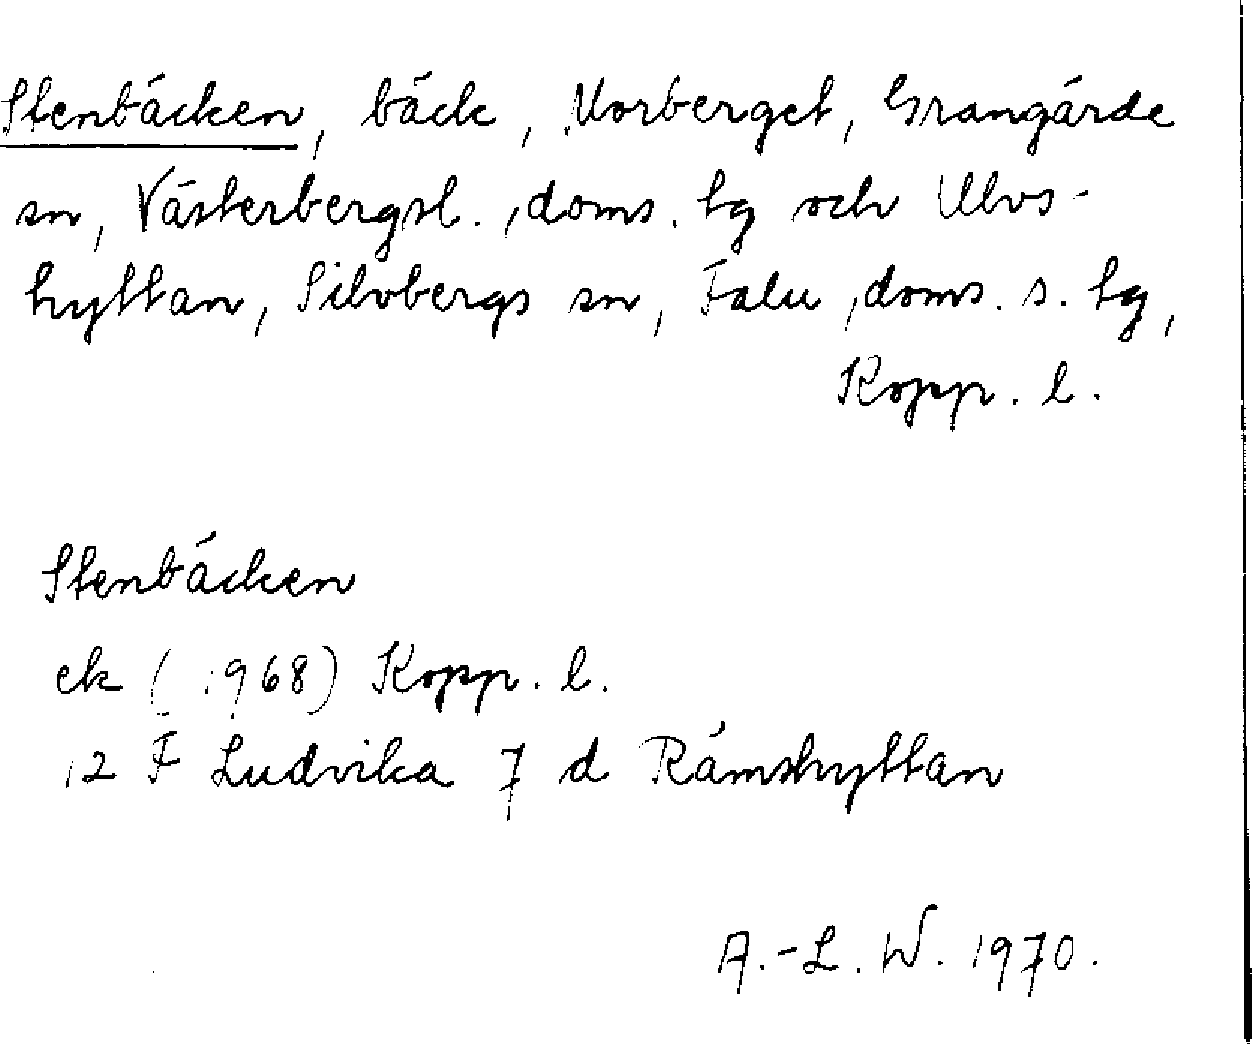 Stenbäcken, bäck, Norberget, Grangärde
sn, Västerbergsl., doms. tg och Ulvs-
hyttan, Silvbergs sn, Falu, doms. s. tg,
Kopp. l.
Stenbäcken
ek (1968) Kopp. l.
12 F Ludvika 7 d Rämshyttan
A.-L. W. 1970.